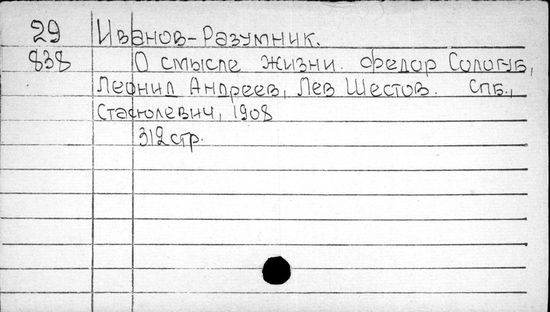 29 Иванов-Разумник.
838 О смысле жизни. Федор Сологуб,
Леонид Андреев, Лев Шестов. Спб.,
Стасюлевич, 1908
312 стр.